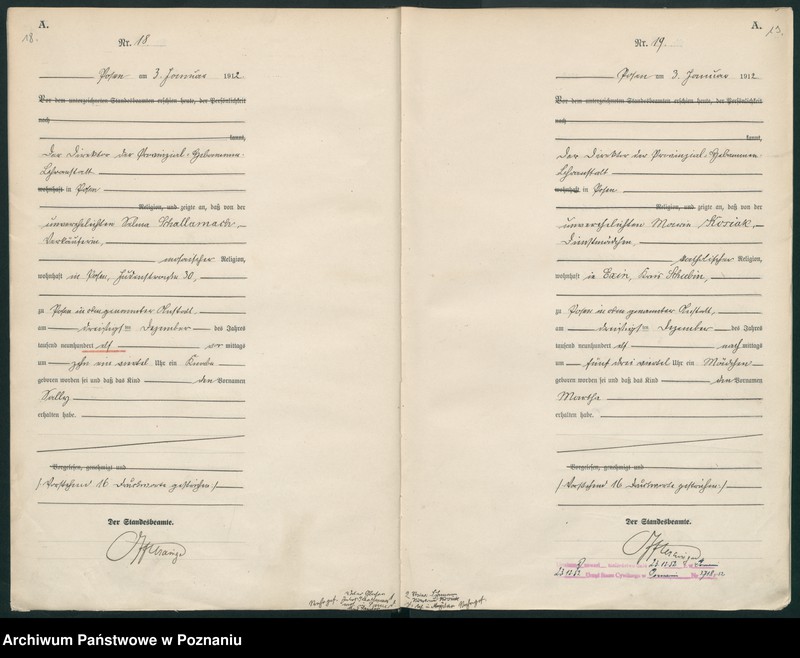 A.
18.
Nr. 18
Posen am 3. Januar 1912
Vor dem unterzeichneten Standesbeamten erschien heute, der Persönlichkeit
nach
kannt,
Der Direktor der Provinzial-Hebammen-
Lehranstalt
wohnhaft in Posen
Religion, und zeigte an, daß von der
unverehelichten Selma Schallamach,
Verkäuferin,
mosaischer Religion,
wohnhaft in Posen, Judenstrasse 30,
zu Posen in obengenannter Anstalt,
am dreißigsten Dezember des Jahres
tausend neunhundert elf vor mittags
um zehn ein viertel Uhr ein Knabe
geboren worden sei und daß das Kind den Vornamen
Sally
erhalten habe.
Vorgelesen, genehmigt und
/ Vorstehend 16 Druckworte gestrichen /
Der Standesbeamte.
A.
19.
Nr. 19.
Posen am 3. Januar 1912
Vor dem unterzeichneten Standesbeamten erschien heute, der Persönlichkeit
nach
kannt,
Der Direktor der Provinzial-Hebammen-
Lehranstalt
wohnhaft in Posen
Religion, und zeigte an, daß von der
unverehelichten Maria Kosiak,
Dienstmädchen,
katholischer Religion,
wohnhaft in Exin, Kreis Schubin,
zu Posen in obengenannter Anstalt,
am dreißigsten Dezember des Jahres
tausend neunhundert elf nach mittags
um fünf drei viertel Uhr ein Mädchen
geboren worden sei und daß das Kind den Vornamen
Martha
erhalten habe.
Vorgelesen, genehmigt und
/ Vorstehend 16 Druckworte gestrichen /
Der Standesbeamte.
23.12.12
Urząd Stanu Cywilnego w
Archiwum Państwowe w Poznaniu